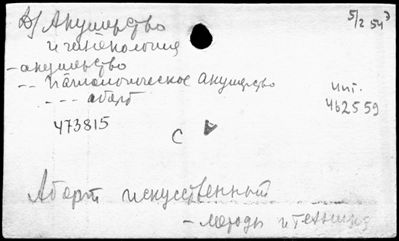 В/ Акушерство
и гинекология
5/2 54
- акушерство
-- Патологическое акушерство
--- аборт
инт.
462559
473815
С
Аборт искусственный
- методы и техника